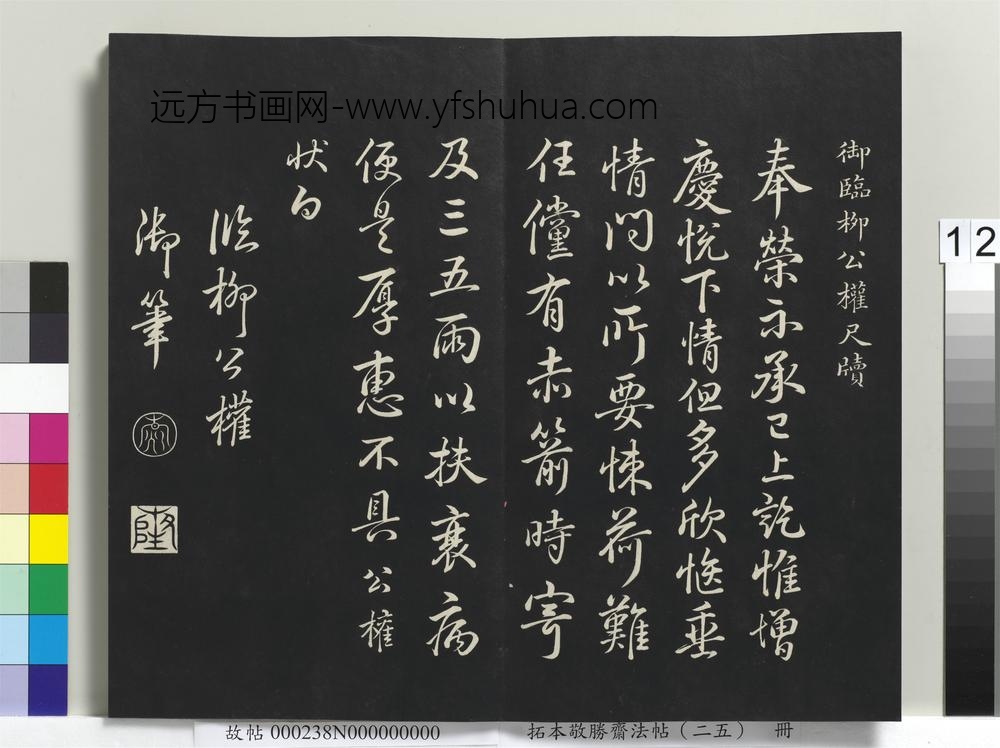 远方书画网-www.yfshuhua.com
御臨柳公權尺牘
奉榮示承已上訖惟增
慶悅下情但多欣愜垂
情問以所要悚荷難
任儻有赤箭時寄
及三五兩以扶衰病
便是厚惠不具公權
狀白
臨柳公權
御筆
乾
隆
12
故帖 000238N000000000
拓本敬勝齋法帖（二五） 冊